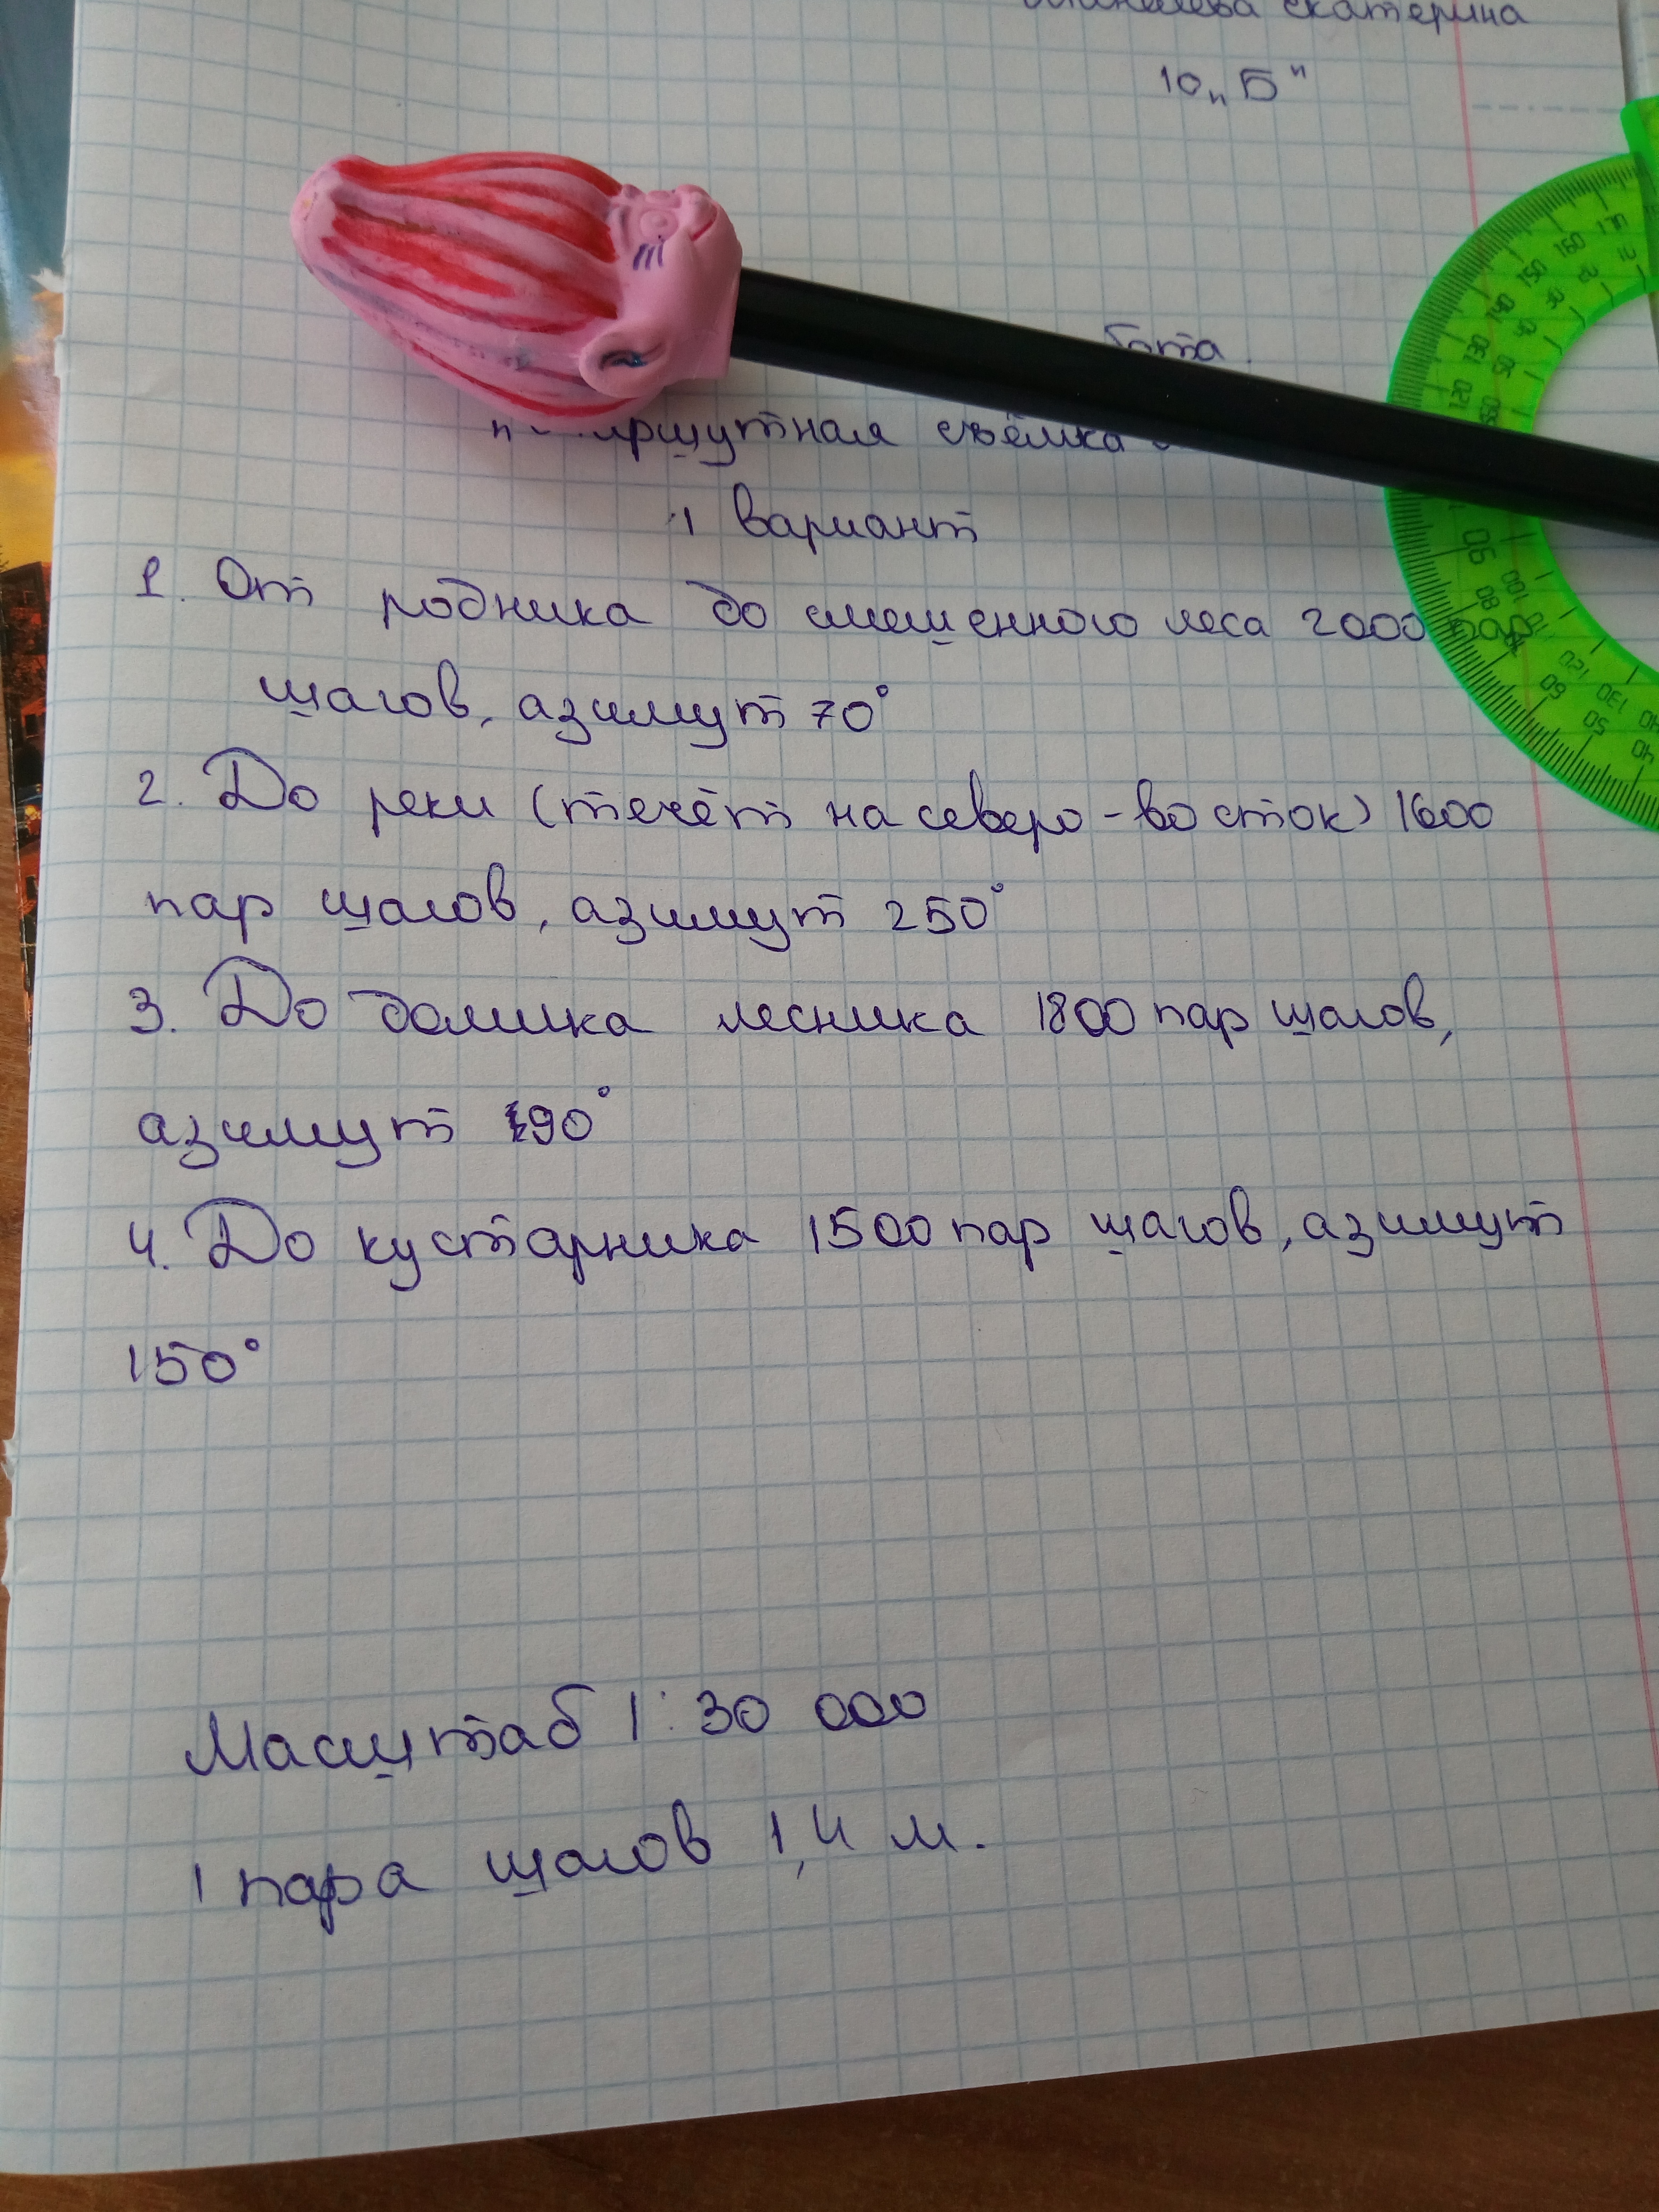 Екатерина
10 „Б"
маршрутная съёмка
1 вариант
1. От родника до смешенного леса 2000 пар
шагов, азимут 70°
2. До реки (течёт на северо-восток) 1600
пар шагов, азимут 250°
3. До домика лесника 1800 пар шагов,
азимут 90°
4. До кустарника 1500 пар шагов, азимут
150°
Масштаб 1:30 000
1 пара шагов 1,4 м.
160
150
140
130
120
90
80
100
60
120
50
130
40